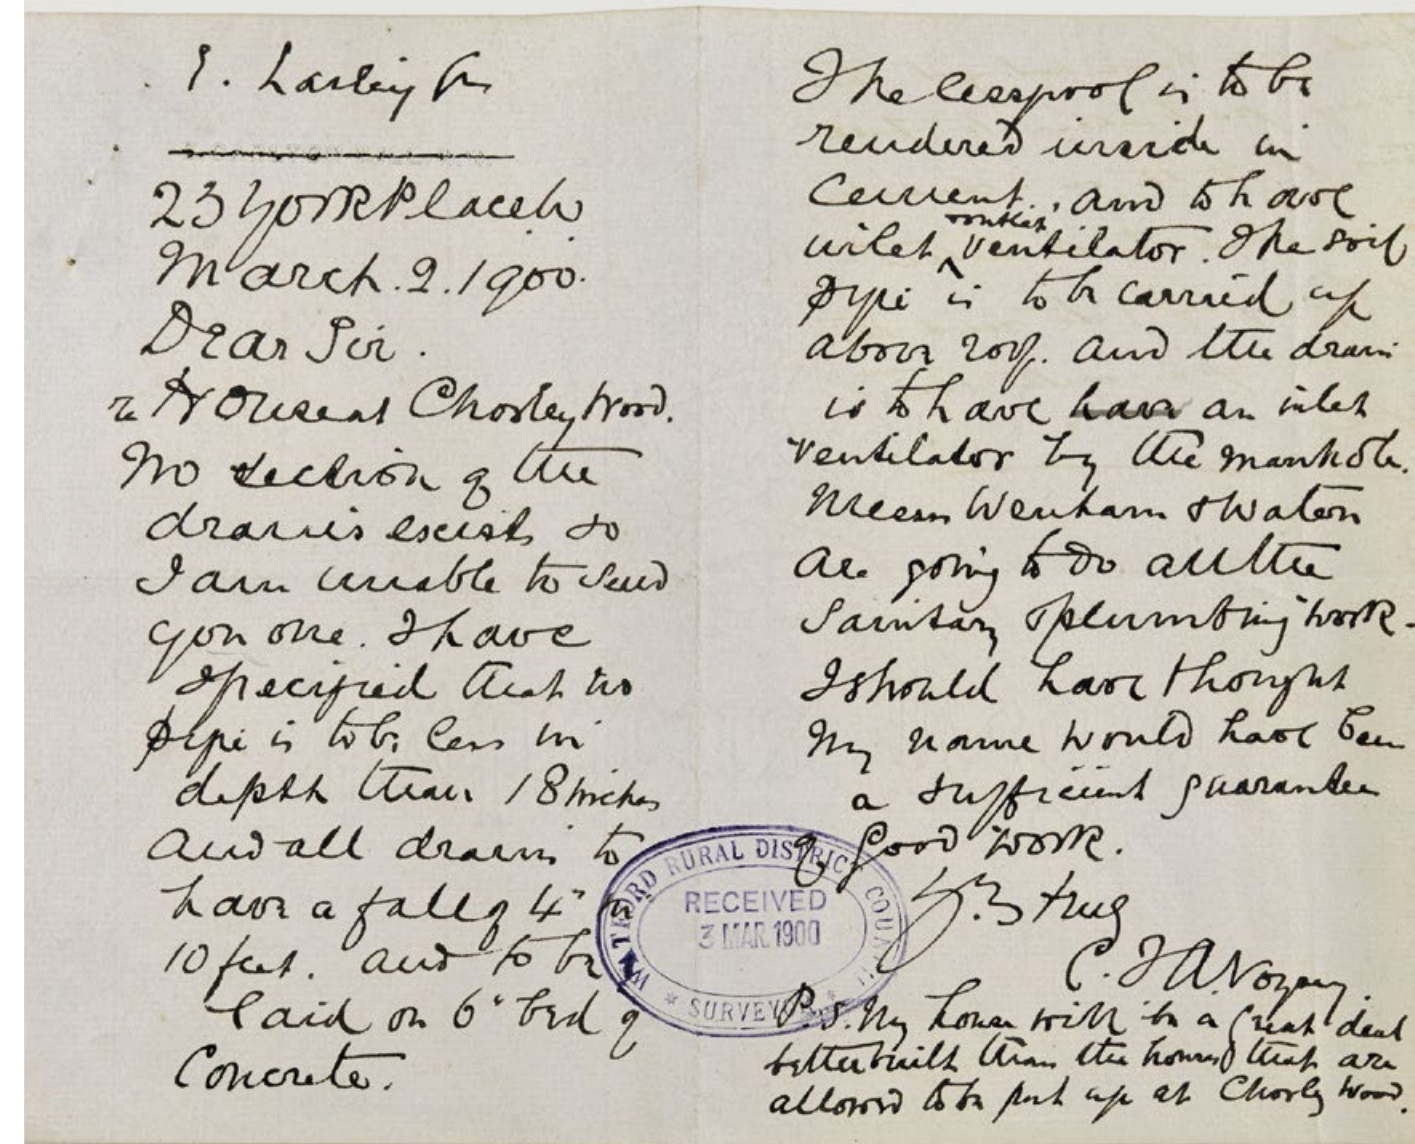 E. Lailey Jn
23 York Place W
March. 2. 1900.
Dear Sir.
re House at Chorley Wood.
No section of the
drains exists so
I am unable to send
you one. I have
specified that no
pipe is to be less in
depth than 18 inches
and all drains to
have a fall of 4" in
10 feet. and to be
laid on 6" bed of
Concrete.
The cesspool is to be
rendered inside in
Cement. and to have
outlet
inlet ventilator. The soil
pipe is to be carried up
above roof. and the drain
is to have have an inlet
ventilator by the manhole.
Messrs Wenham & Waters
are going to do all the
Sanitary & plumbing work.
I should have thought
my name would have been
a sufficient guarantee
of good work.
C. F. A. Voysey.
P.S. My house will be a great deal
better built than the houses that are
allowed to be put up at Chorley Wood.
WATFORD RURAL DISTRICT COUNCIL
RECEIVED
3 MAR. 1900
SURVEYOR